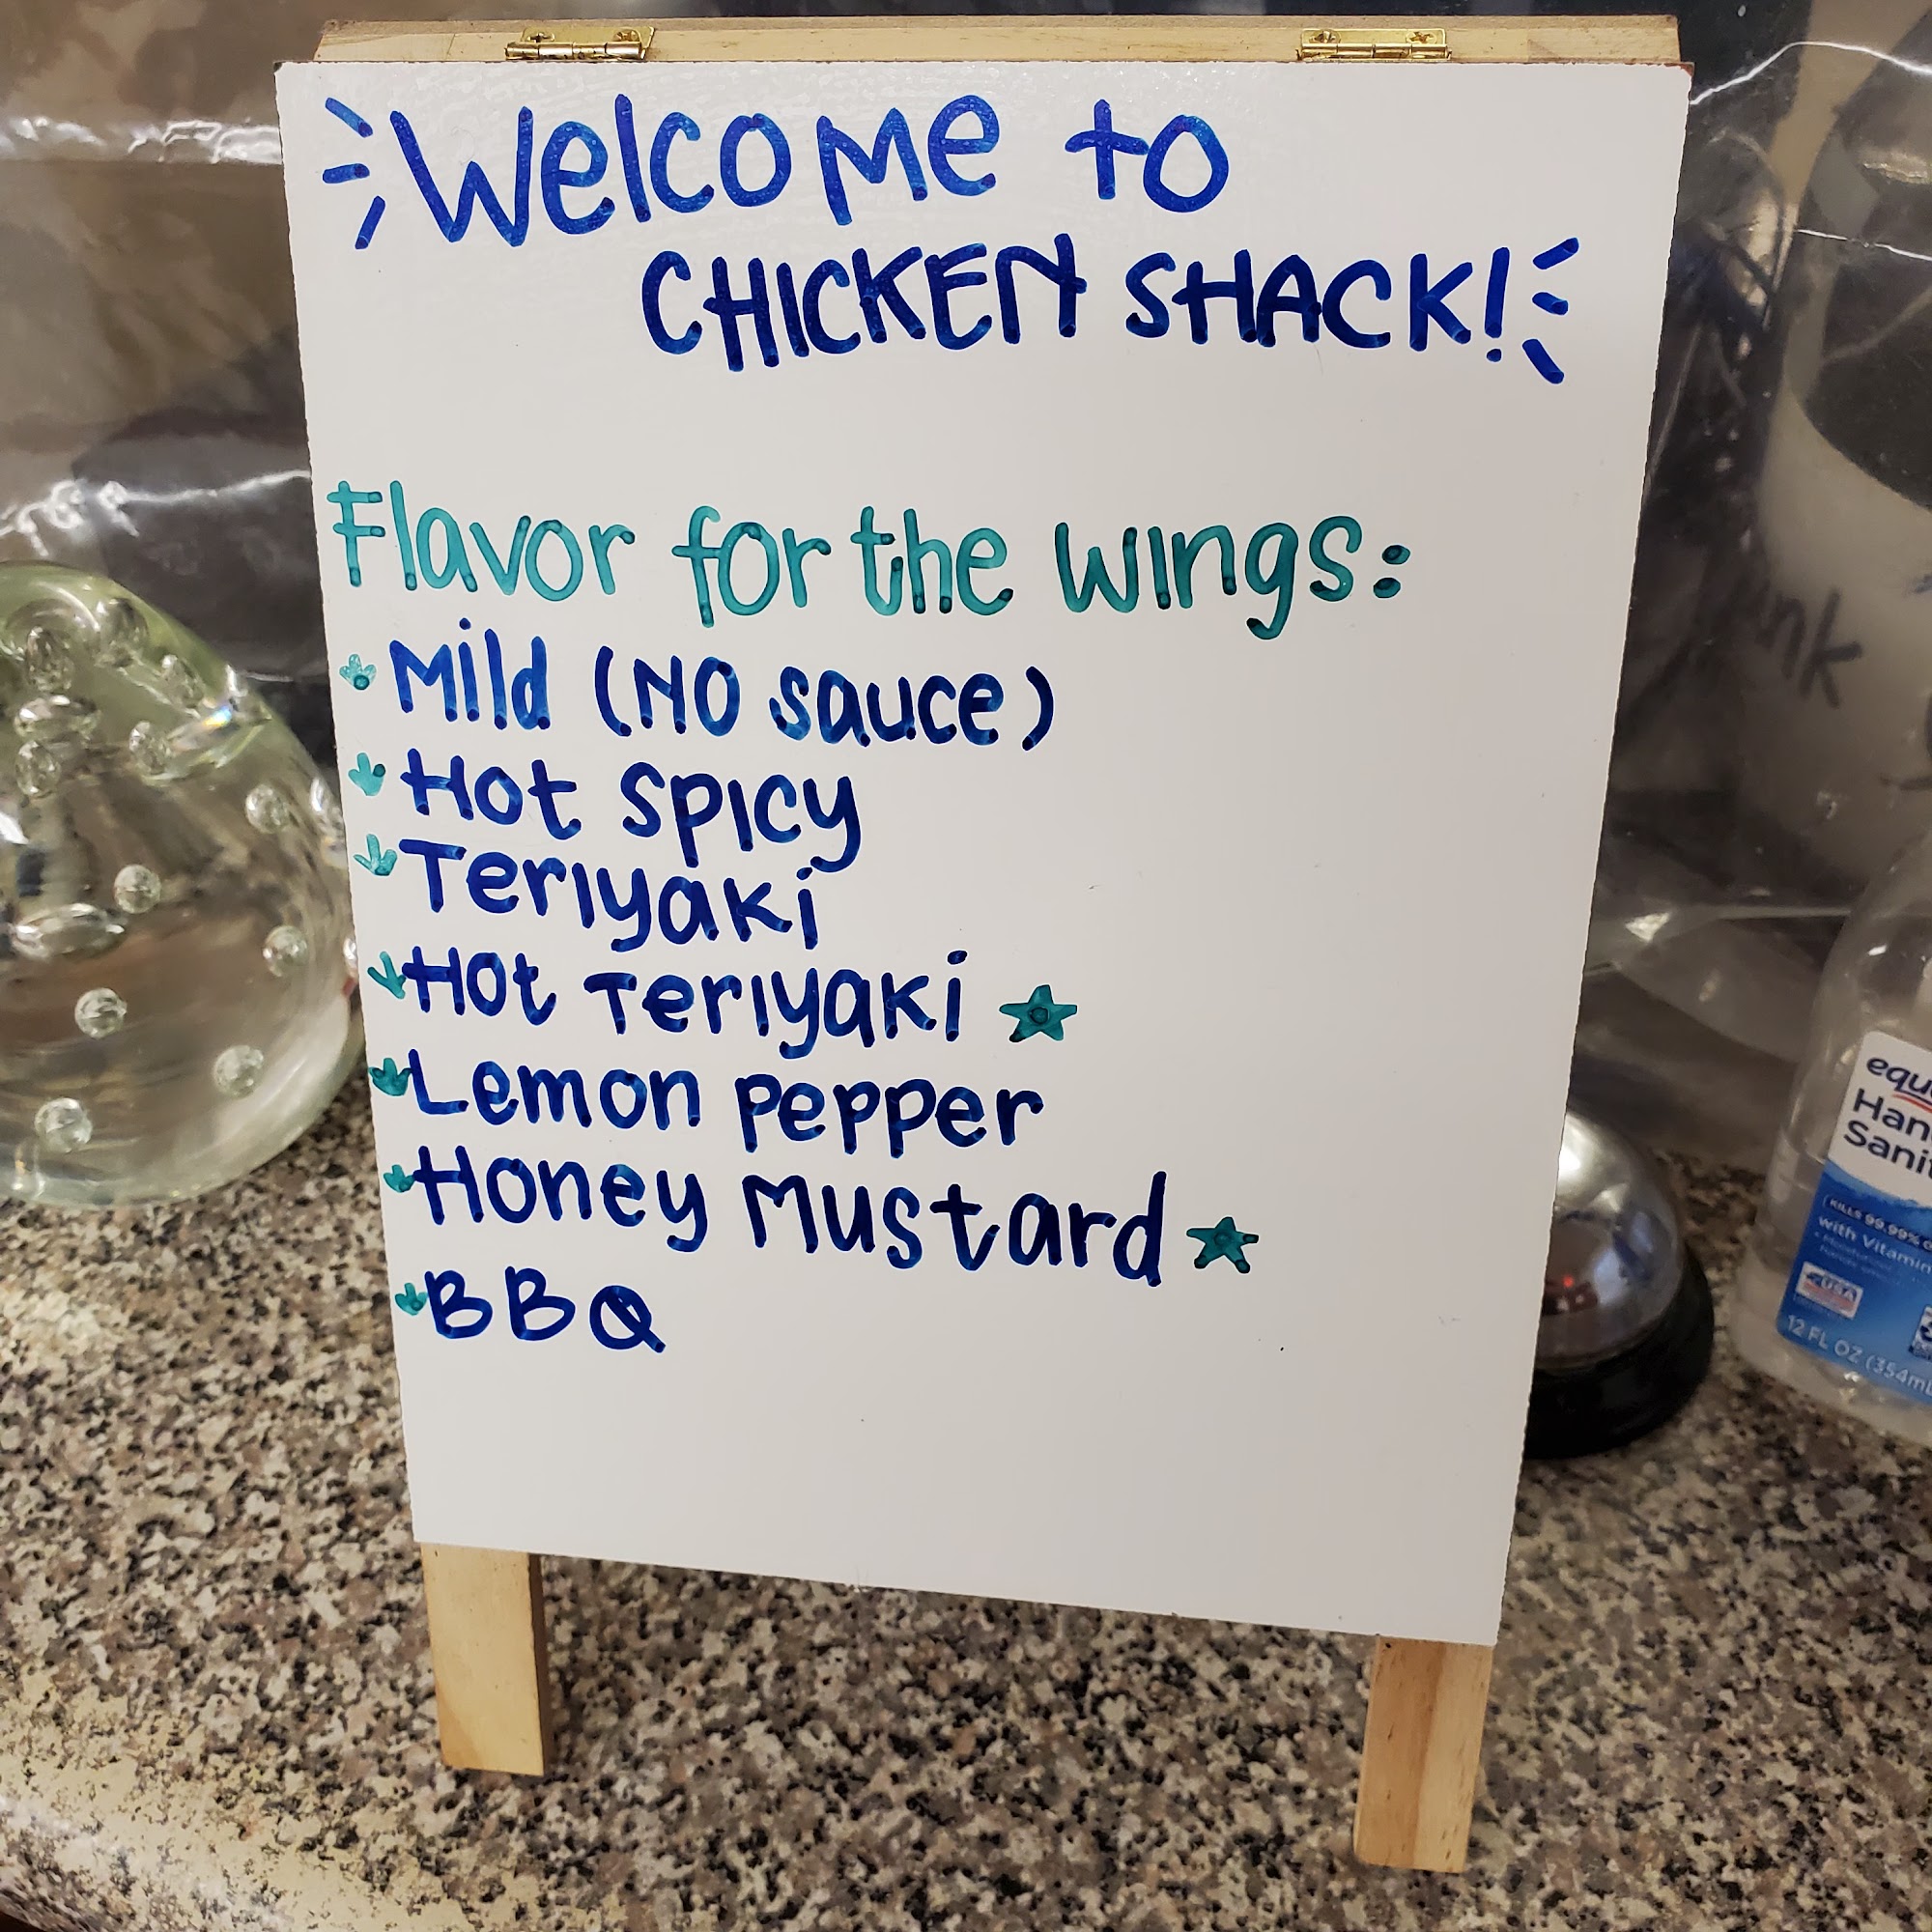 Welcome to
CHICKEN SHACK!
Flavor for the wings:
Mild (NO sauce)
Hot Spicy
Teriyaki
Hot Teriyaki ★
Lemon Pepper
Honey Mustard ★
BBQ
equ
Han
Sanit
KILLS 99.99% o
with Vitamin
USA
12 FL OZ (354mL